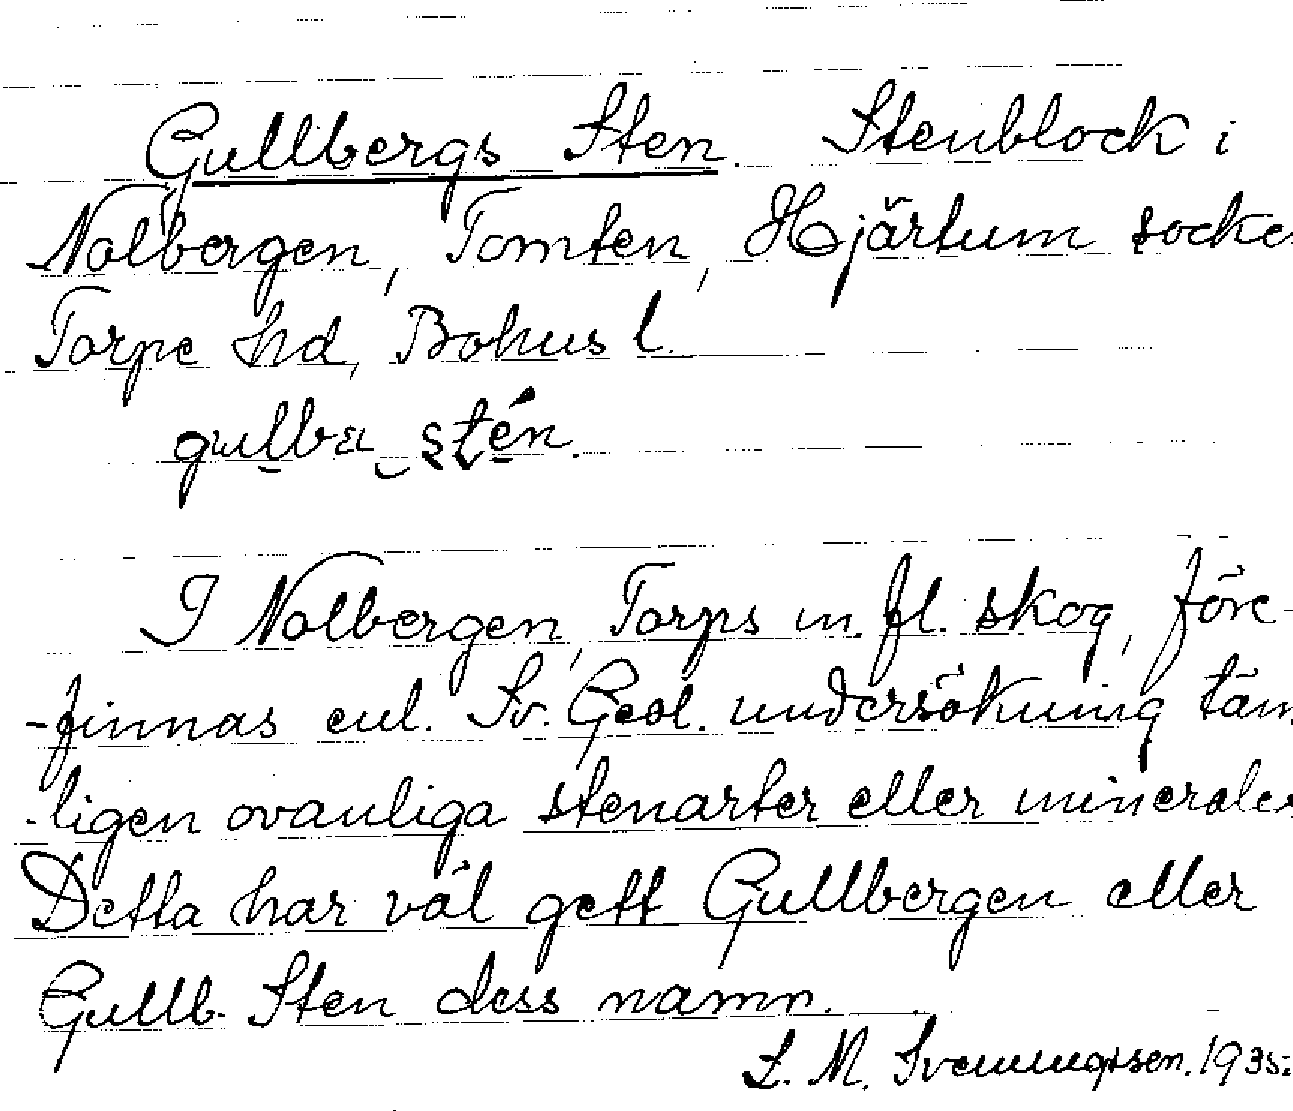 Gullbergs Sten. Stenblock i
Nolbergen, Tomten, Hjärtum socke
Torpe hd, Bohus l.
gullbæ stén.
I Nolbergen, Torps m. fl. skog, före-
-finnas enl. Sv. Geol. undersökning täm
-ligen ovanliga stenarter eller mineraler
Detta har väl gett Gullbergen eller
Gullb. Sten dess namn.
L. M. Svenungsson. 1935.